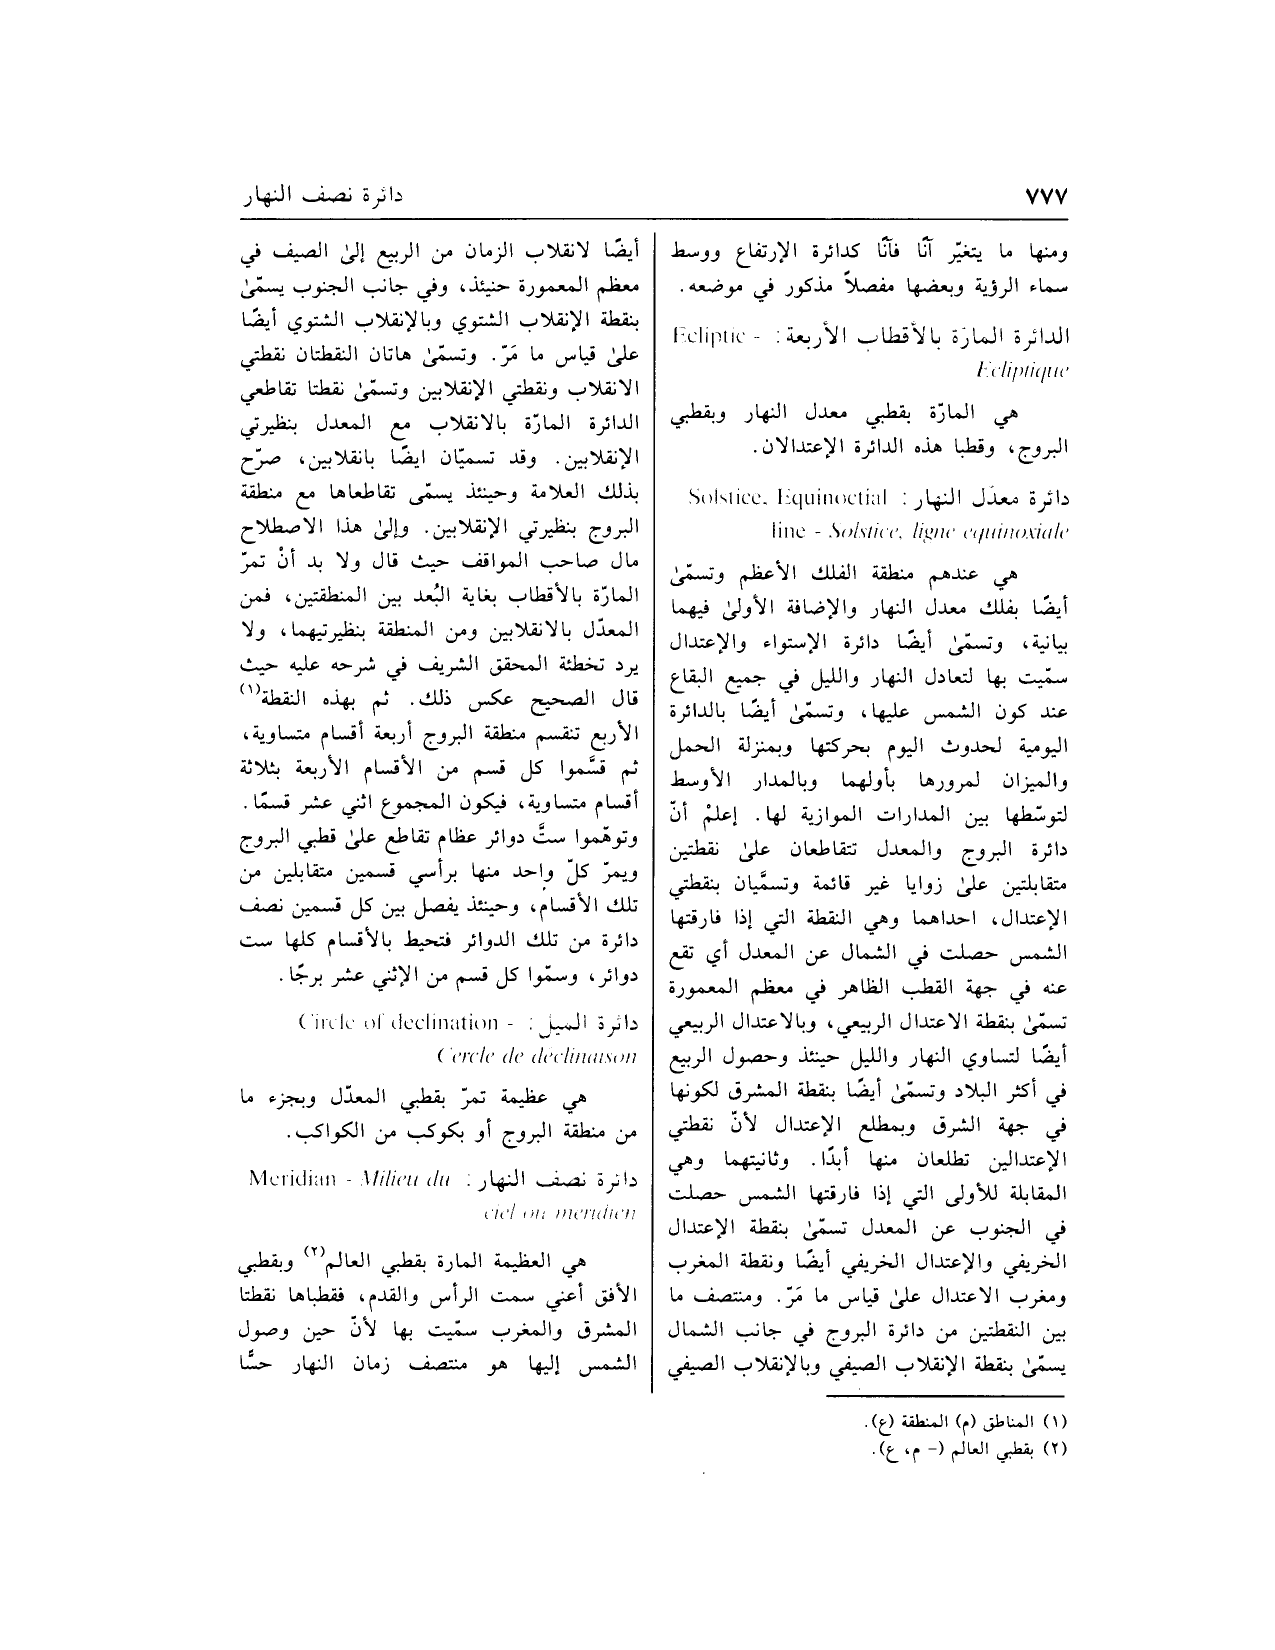 ٧٧٧
دائرة نصف النهار
ومنها ما يتغيّر آنًا فآنًا كدائرة الإرتفاع ووسط
سماء الرؤية وبعضها مفصلاً مذكور في موضعه.
الدائرة المارّة بالأقطاب الأربعة: Ecliptic -
Ecliptique
هي المارّة بقطبي معدل النهار وبقطبي
البروج، وقطبا هذه الدائرة الإعتدالان.
دائرة معدّل النهار: Solstice, Equinoctial
line - Solstice, ligne equinoxiale
هي عندهم منطقة الفلك الأعظم وتسمّىٰ
أيضًا بفلك معدل النهار والإضافة الأولىٰ فيهما
بيانية، وتسمّىٰ أيضًا دائرة الإستواء والإعتدال
سمّيت بها لتعادل النهار والليل في جميع البقاع
عند كون الشمس عليها، وتسمّىٰ أيضًا بالدائرة
اليومية لحدوث اليوم بحركتها وبمنزلة الحمل
والميزان لمرورها بأولهما وبالمدار الأوسط
لتوسّطها بين المدارات الموازية لها. إعلمْ أنّ
دائرة البروج والمعدل تتقاطعان علىٰ نقطتين
متقابلتين علىٰ زوايا غير قائمة وتسمَّيان بنقطتي
الإعتدال، احداهما وهي النقطة التي إذا فارقتها
الشمس حصلت في الشمال عن المعدل أي تقع
عنه في جهة القطب الظاهر في معظم المعمورة
تسمّىٰ بنقطة الاعتدال الربيعي، وبالاعتدال الربيعي
أيضًا لتساوي النهار والليل حينئذ وحصول الربيع
في أكثر البلاد وتسمّىٰ أيضًا بنقطة المشرق لكونها
في جهة الشرق وبمطلع الإعتدال لأنّ نقطتي
الإعتدالين تطلعان منها أبدًا. وثانيتهما وهي
المقابلة للأولى التي إذا فارقتها الشمس حصلت
في الجنوب عن المعدل تسمّىٰ بنقطة الإعتدال
الخريفي والإعتدال الخريفي أيضًا ونقطة المغرب
ومغرب الاعتدال علىٰ قياس ما مَرّ. ومنتصف ما
بين النقطتين من دائرة البروج في جانب الشمال
يسمّىٰ بنقطة الإنقلاب الصيفي وبالإنقلاب الصيفي
أيضًا لانقلاب الزمان من الربيع إلىٰ الصيف في
معظم المعمورة حنيئذ، وفي جانب الجنوب يسمّىٰ
بنقطة الإنقلاب الشتوي وبالإنقلاب الشتوي أيضًا
علىٰ قياس ما مَرّ. وتسمّىٰ هاتان النقطتان نقطتي
الانقلاب ونقطتي الإنقلابين وتسمّىٰ نقطتا تقاطعي
الدائرة المارّة بالانقلاب مع المعدل بنظيرتي
الإنقلابين. وقد تسميّان ايضًا بانقلابين، صرّح
بذلك العلامة وحينئذ يسمّى تقاطعاها مع منطقة
البروج بنظيرتي الإنقلابين. وإلىٰ هذا الاصطلاح
مال صاحب المواقف حيث قال ولا بد أنْ تمرّ
المارّة بالأقطاب بغاية البُعد بين المنطقتين، فمن
المعدّل بالانقلابين ومن المنطقة بنظيرتيهما، ولا
يرد تخطئة المحقق الشريف في شرحه عليه حيث
قال الصحيح عكس ذلك. ثم بهذه النقطة(١)
الأربع تنقسم منطقة البروج أربعة أقسام متساوية،
ثم قسَّموا كل قسم من الأقسام الأربعة بثلاثة
أقسام متساوية، فيكون المجموع اثني عشر قسمًا.
وتوهّموا ستَّ دوائر عظام تقاطع علىٰ قطبي البروج
ويمرّ كلّ واحد منها برأسي قسمين متقابلين من
تلك الأقسام، وحينئذ يفصل بين كل قسمين نصف
دائرة من تلك الدوائر فتحيط بالأقسام كلها ست
دوائر، وسمّوا كل قسم من الإثني عشر برجًا.
دائرة الميل: Circle of declination -
Cercle de déclinaison
هي عظيمة تمرّ بقطبي المعدّل وبجزء ما
من منطقة البروج أو بكوكب من الكواكب.
دائرة نصف النهار: Meridian - Milieu du
ciel ou meridien
هي العظيمة المارة بقطبي العالم(٢) وبقطبي
الأفق أعني سمت الرأس والقدم، فقطباها نقطتا
المشرق والمغرب سمّيت بها لأنّ حين وصول
الشمس إليها هو منتصف زمان النهار حسًّا
(١) المناطق (م) المنطقة (ع).
(٢) بقطبي العالم (- م، ع).